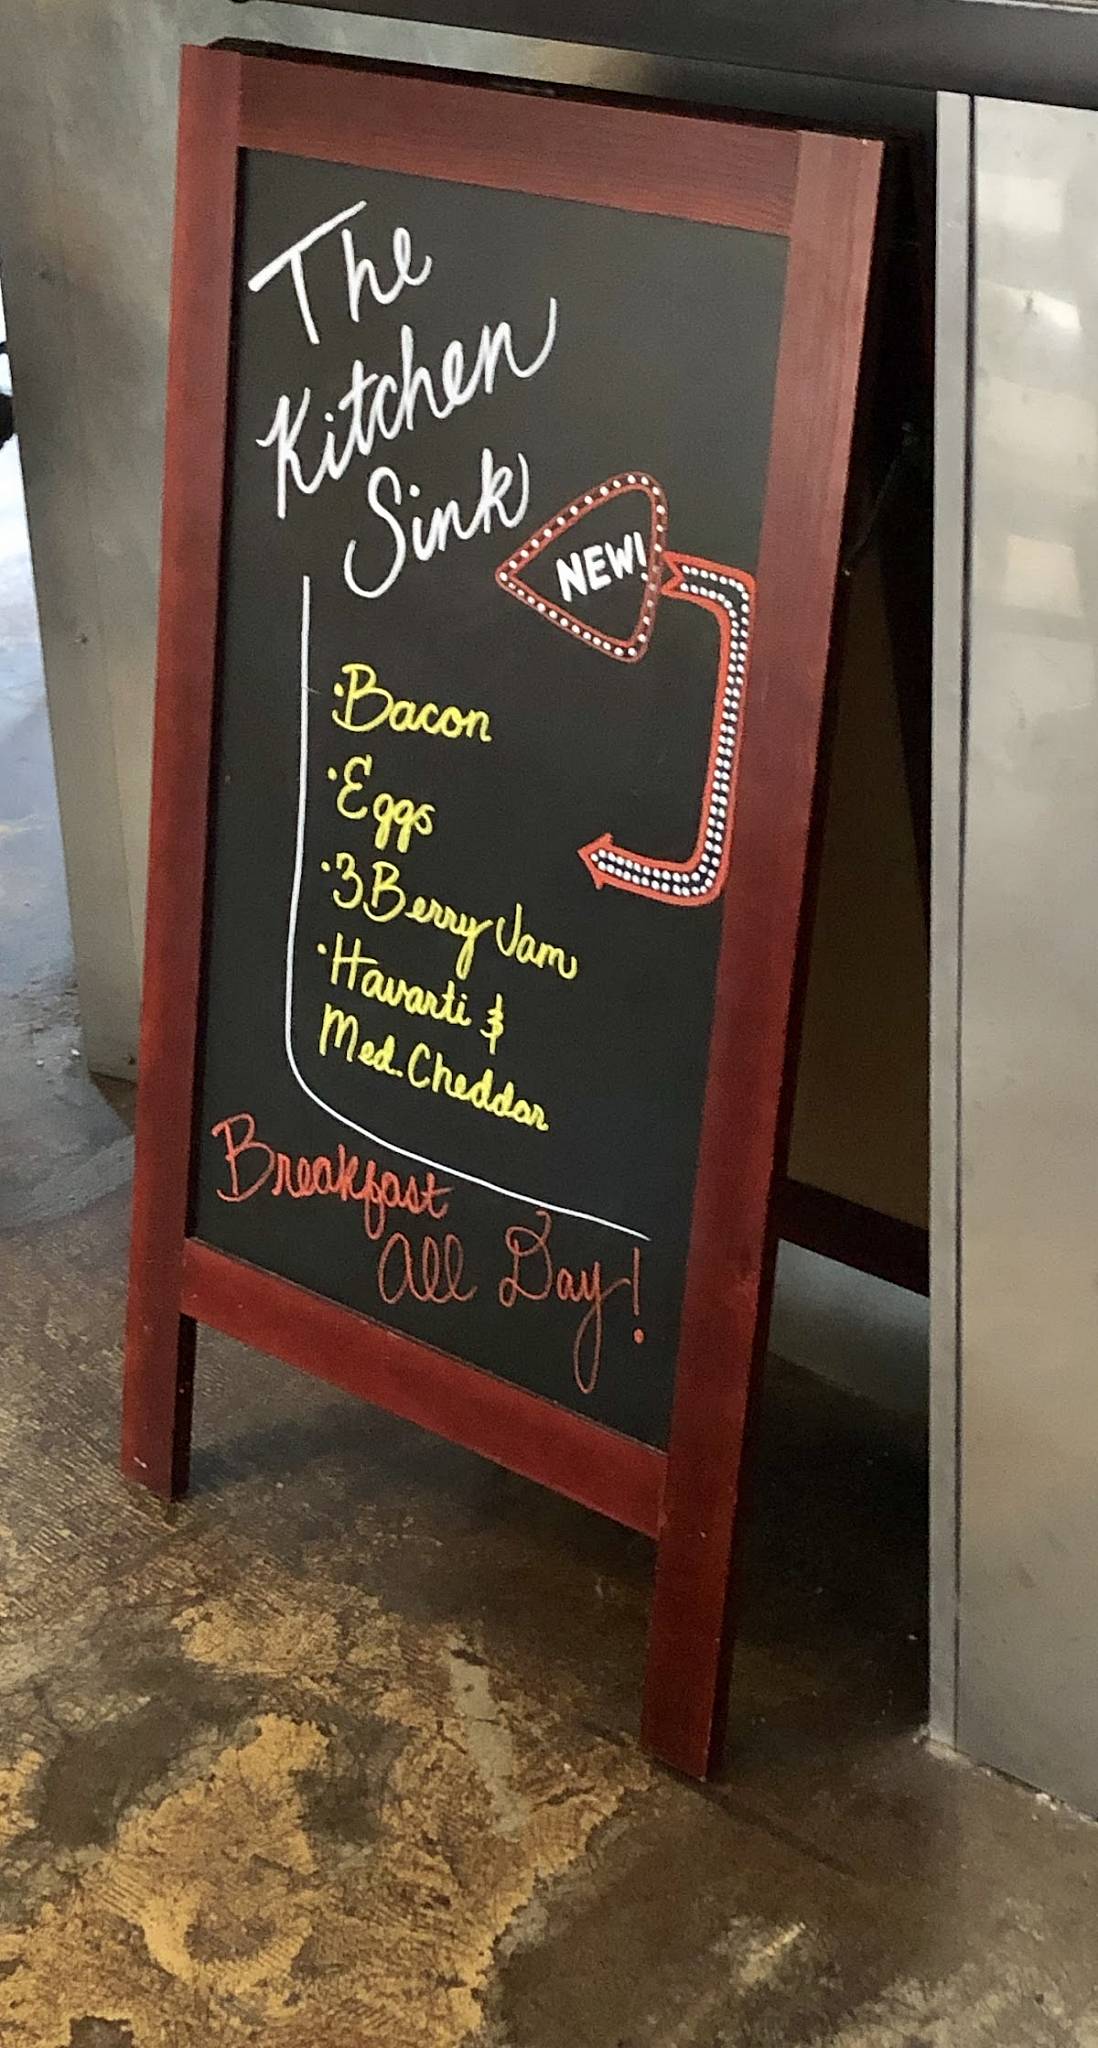 The
Kitchen
Sink
NEW!
·Bacon
·Eggs
·3 Berry Jam
·Havarti &
Med. Cheddar
Breakfast
All Day!